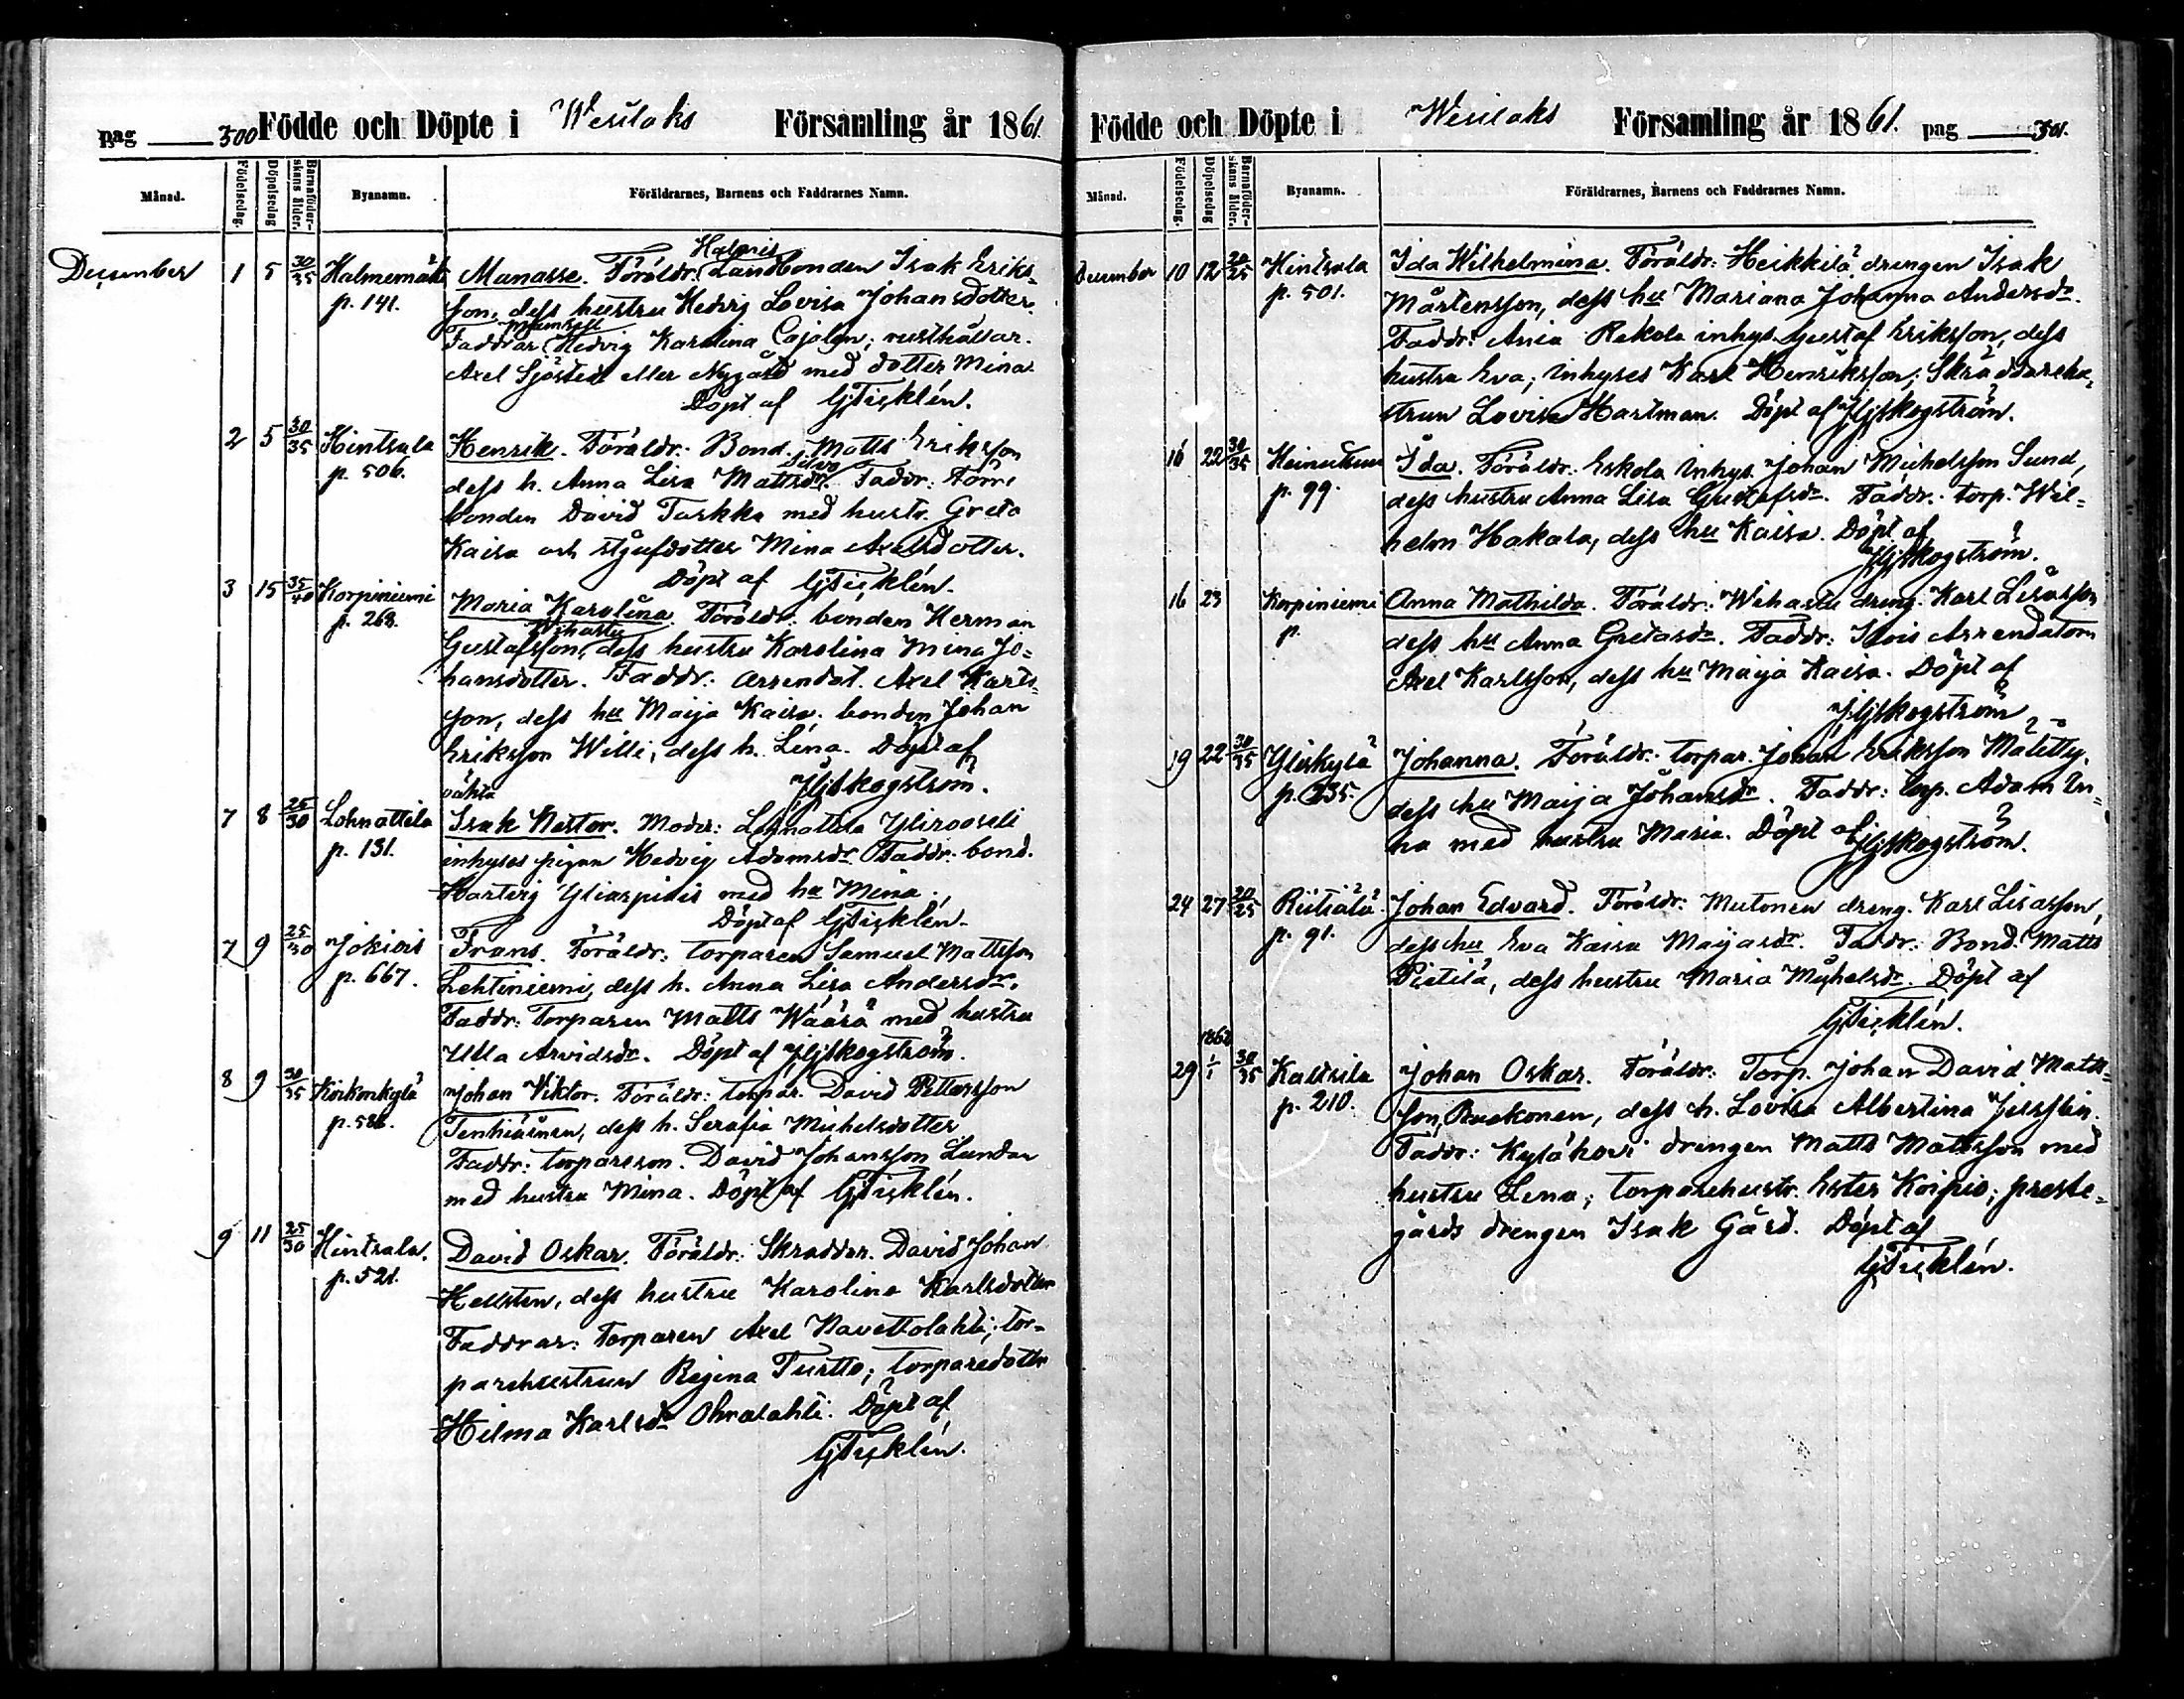 pag 300 Födde och Döpte i Wesilaks Församling år 1861.
Månad. Födelsedag. Döpelsedag Barnaföderskans ålder. Byanamn. Föräldrarnes, Barnens och Faddrarnes Namn.
Halpois
December 1 5 30/35 Halmemäki Manasse. Föräldr: Landbonden Isak Eriks-
p. 141. son, dess hustru Hedvig Lovisa Johansdotter.
mamsell
Faddrar Hedvig Karolina Cajalen; rusthållar.
Axel Sjöstedt eller Nygård med dotter Mina.
Döpt af GTicklén.
2 5 30/35 Hintsala Henrik. Föräldr: Bond. Matts Eriksson
Silvo
p. 506. dess h. Anna Lisa Mattsdr. Faddr:
bonden David Taskka med hustr. Greta
Kaisa och styufdotter Mina Axelsdotter.
Döpt af GTicklén.
3 15 35/40 Korpiniemi Maria Karolina. Föräldr: bonden Herman
p. 268. Wihastu
Gustafsson, dess hustru Karolina Mina Jo-
hansdotter. Faddr: arrendat. Axel Karls-
son, dess hu Maija Kaisa; bonden Johan
Eriksson Willi, dess h. Lena. Döpt af
JGSkogström.
oäkta
7 8 25/30 Lohnattila Isak Nestor. Moder: Lohnattila Ylirooseli
p. 131. inhyses pigan Hedvig Adamsdr Faddr. bond.
Hartvig Yliaspidis med hu Mina.
Döpt af GTicklén.
7 9 25/30 Jokiois Frans. Föräldr: torparen Samuel Mattsson
p. 667. Lehtiniemi, dess h. Anna Lisa Andersdr.
Faddr: Torparen Matts Waärä med hustru
Ulla Arvidsdr. Döpt af JGSkogström.
8 9 30/35 Koikonkylä Johan Viktor. Föräldr: torpar. David Pettersson
p. 588. Tenhiäinen, dess h. Serafia Michelsdotter
Faddr: torpareson. David Johansson Lundan
med hustru Mina. Döpt af GTicklén.
9 11 25/30 Hintsala. David Oskar. Föräldr: Skraddar. David Johan
p. 521. Hellsten, dess hustru Karolina Karlsdotter
Faddrar: Torparen Axel Navettolahti; tor-
parehustrun Regina Turtto; torparedotter
Hilma Karlsdr Ohralahti. Döpt af
GTicklén.
Födde och Döpte i Wesilaks Församling år 1861. pag 301.
Månad. Födelsedag. Döpelsedag Barnaföderskans ålder. Byanamn. Föräldrarnes, Barnens och Faddrarnes Namn.
December 10 12 20/25 Hintsala Ida Wilhelmina. Föräldr: Heikkilä drengen Isak
p. 501. Mårtensson, dess hu Mariana Johanna Andersdr.
Faddr: Ania Rekola inhys. Gustaf Eriksson, dess
hustru Eva; inhyses Karl Henriksson; Skräddarehu-
strun Lovisa Hartman. Döpt af JGSkogström.
16 22 30/35 Heinisuu Ida. Föräldr: Eskola inhys. Johan Michelsson Sund,
p. 99. dess hustru Anna Lisa Gustafsdr. Faddr: torp. Wil-
helm Hakala, dess hu Kaisa. Döpt af
JGSkogström.
16 23 Korpiniemi Anna Mathilda. Föräldr: Wihastu dreng. Karl Lisasson
p. dess hu Anna Gretasdr. Faddr: Isois Arrendatorn
Axel Karlsson, dess hu Maija Kaisa. Döpt af
JGSkogström
19 22 30/35 Yliskylä Johanna. Föräldr: torpar. Johan Eriksson Mäletty,
p. 235. dess hu Maija Johansdr. Faddr: torp. Adam In-
ha med hustru Maria. Döpt af JGSkogström.
24 27 20/25 Riitiälä Johan Edvard. Föräldr: Mutonen dreng. Karl Lisasson,
p. 91. dess hu Eva Kaisa Maijasdr. Faddr: Bond. Matts
Pietilä, dess hustru Maria Michelsdr. Döpt af
GTicklén.
1862
29 1/1 30/35 Kaltsila Johan Oskar. Föräldr: Torp. Johan David Matts-
p. 210. son Ruokonen, dess h. Lovisa Albertina
Faddr: Kyläkovi drengen Matts Mattsson med
hustru Lena; torparehustr. Ester Koipio; preste-
gårds drengen Isak Gård. Döpt af
GTicklén.